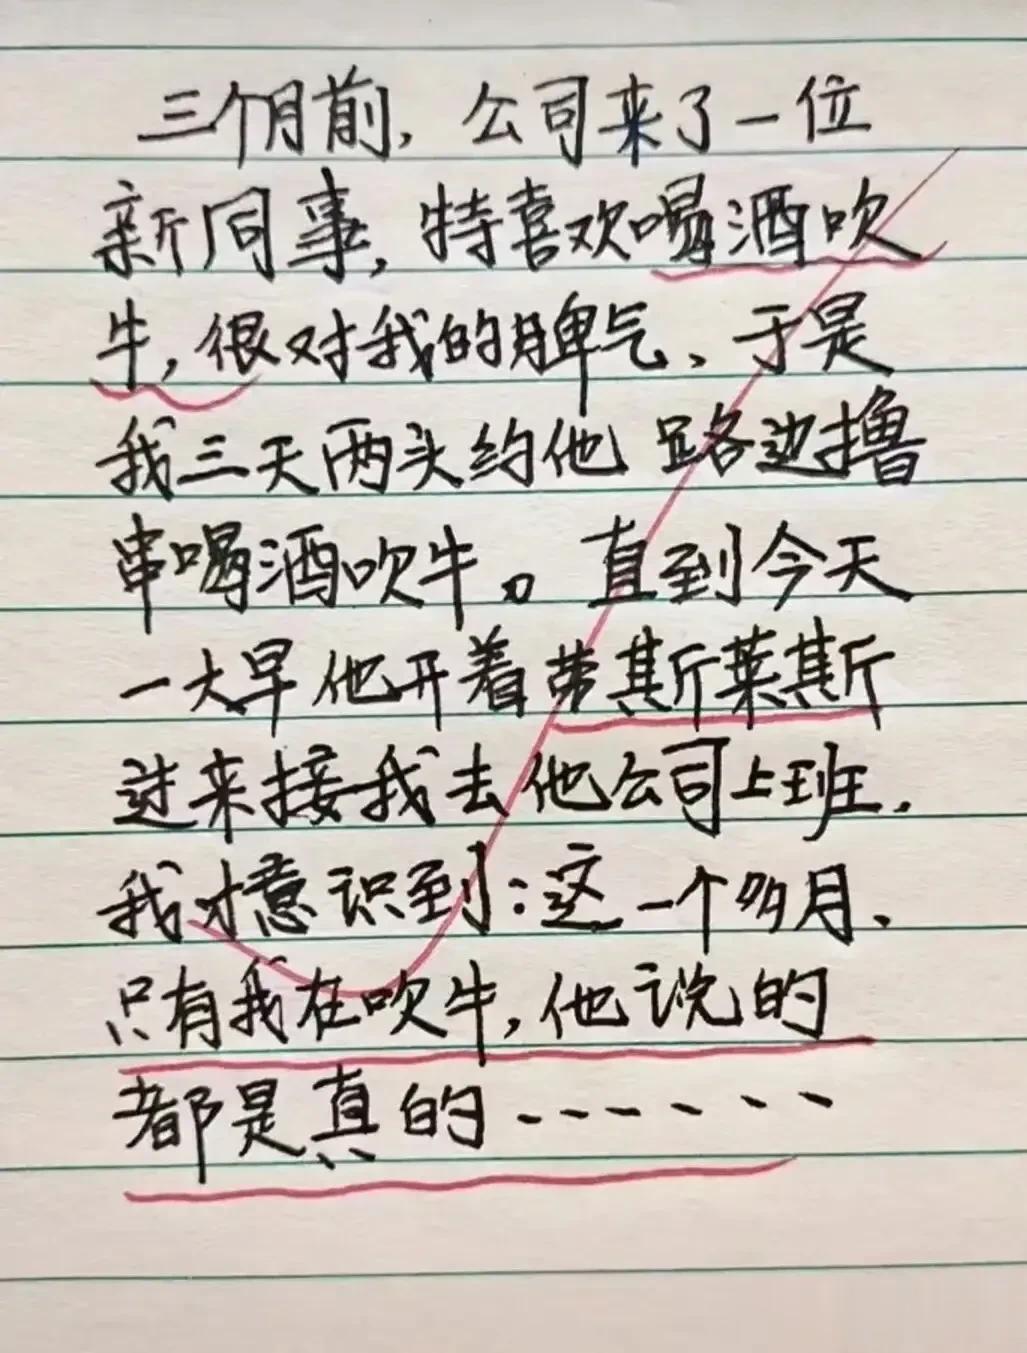 三个月前，公司来了一位
新同事，特喜欢喝酒吹
牛，很对我的脾气、于是
我三天两头约他路边撸
串喝酒吹牛。直到今天
一大早他开着劳斯莱斯
过来接我去他公司上班.
我才意识到:这一个多月、
只有我在吹牛，他说的
都是真的------